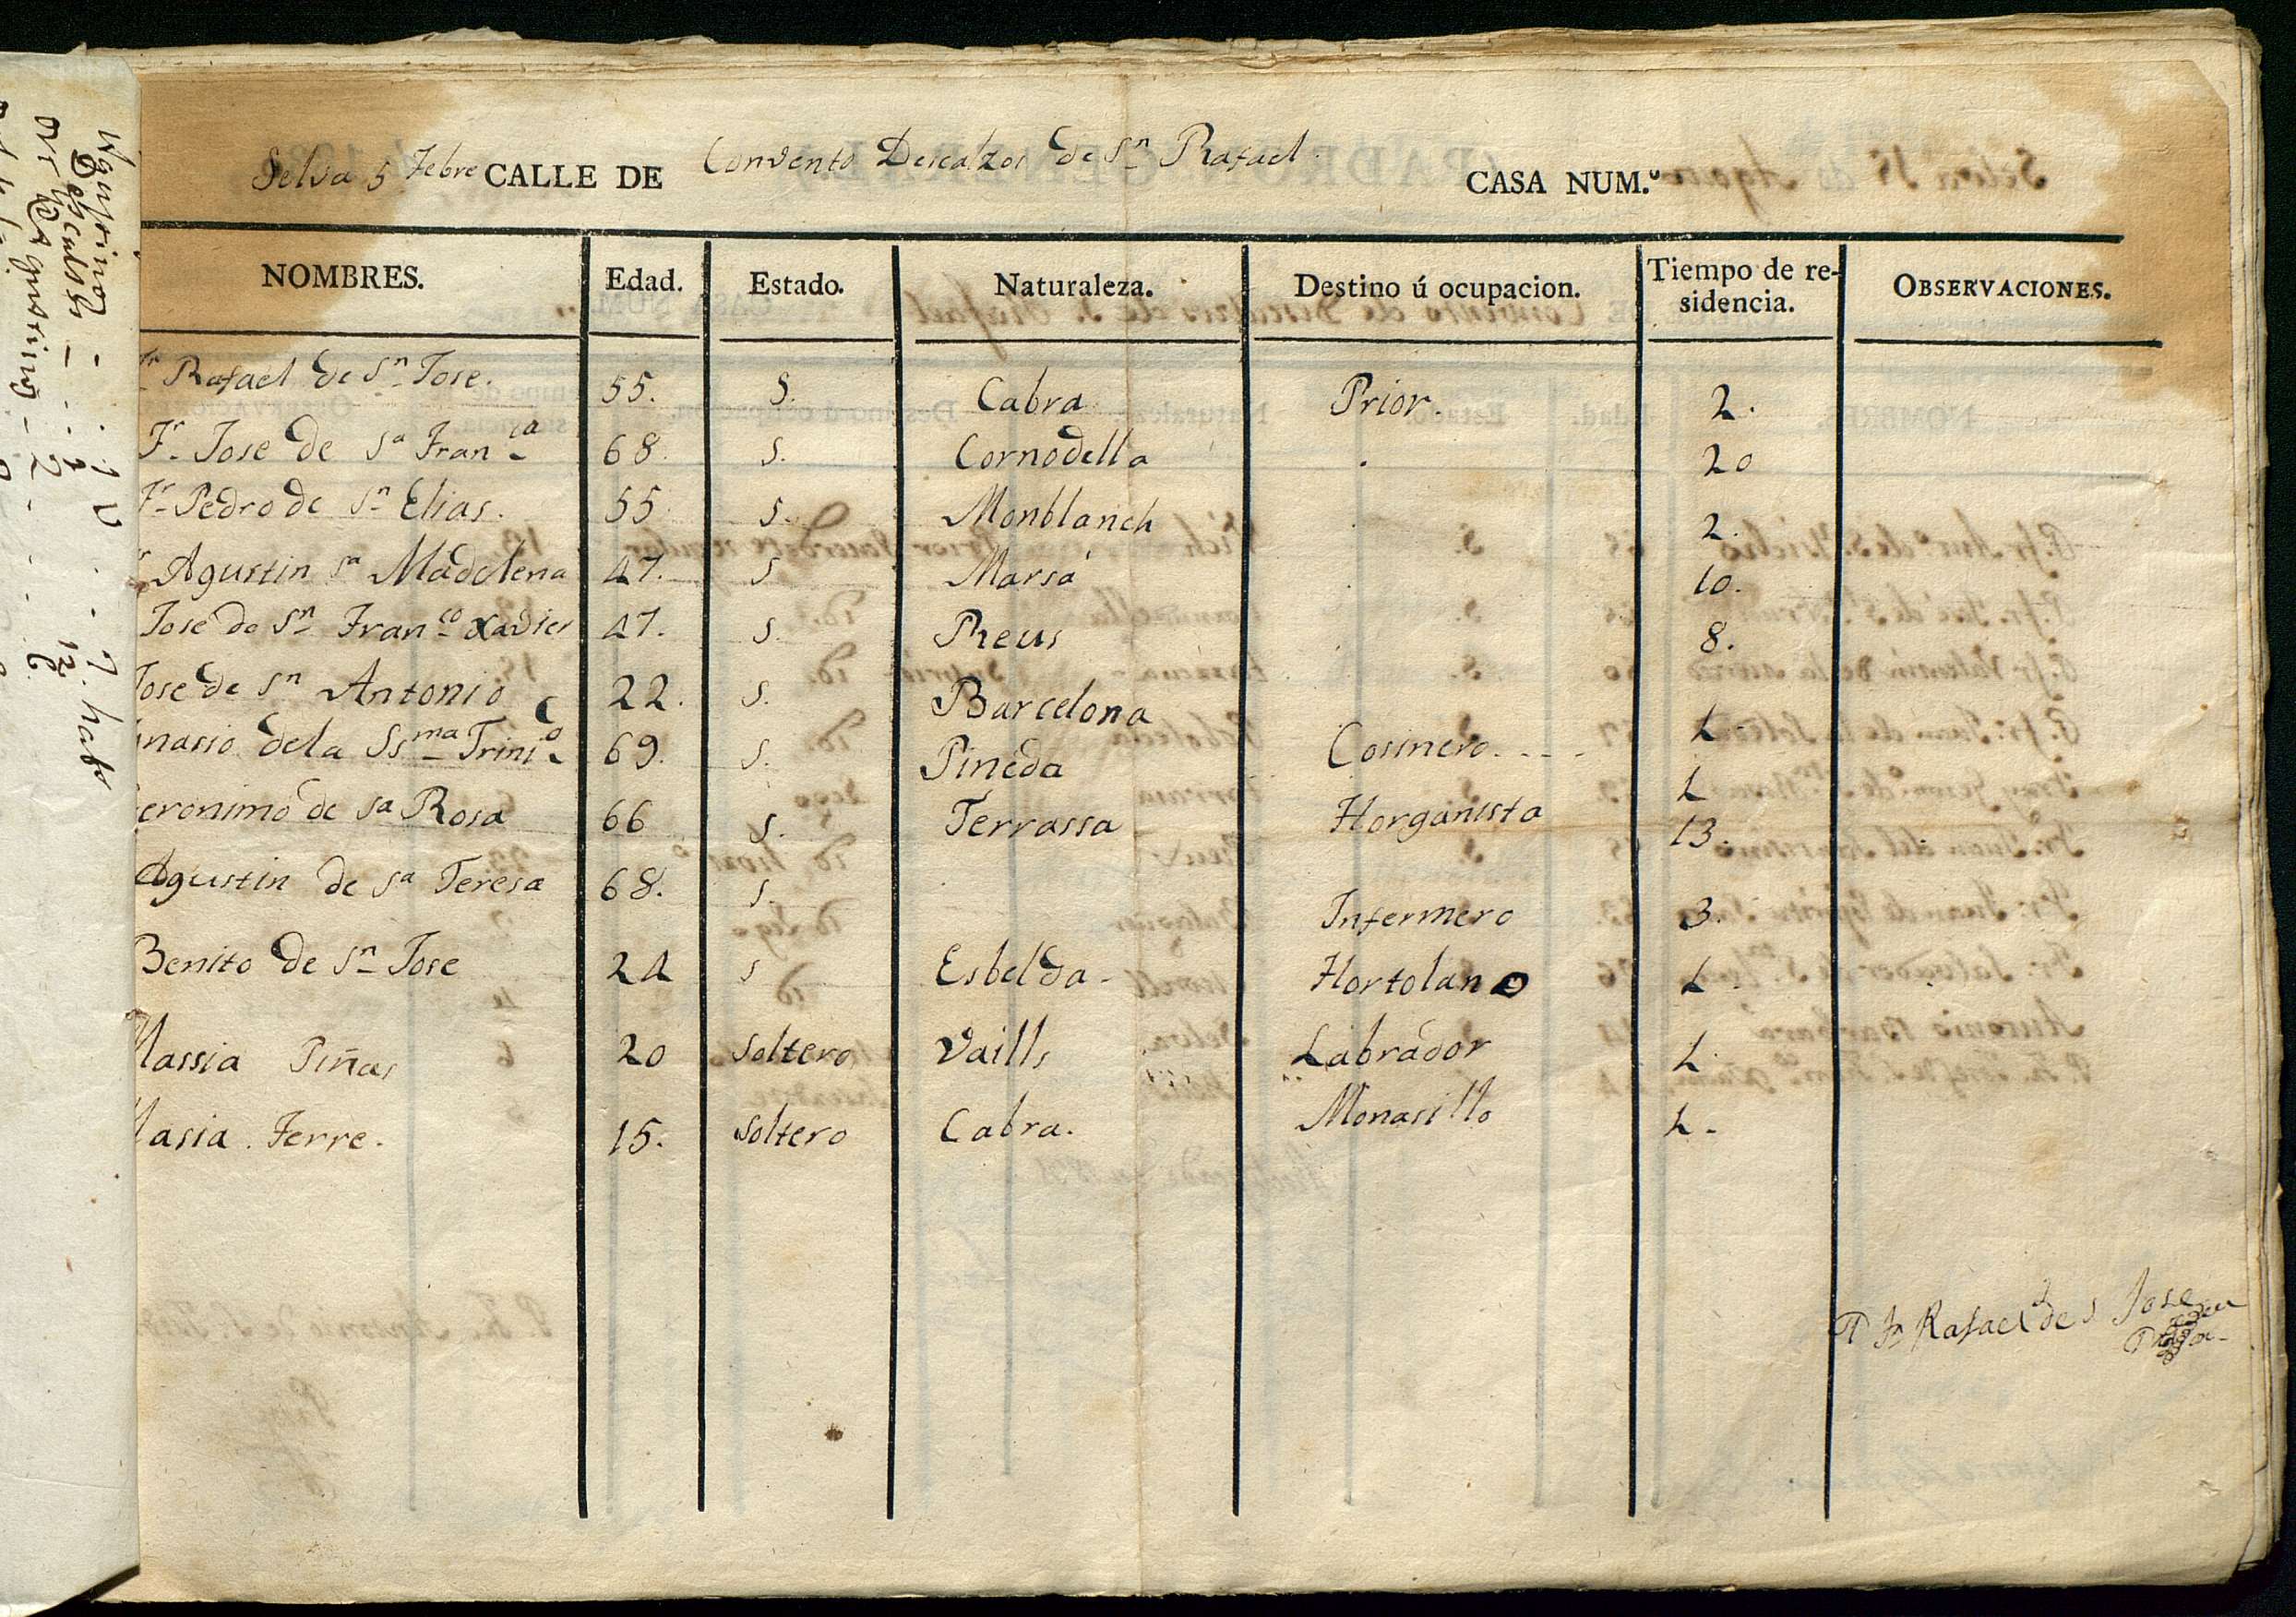 Selva 5 Febre CALLE DE Convento Descalzos de Sn Rafael CASA NUM.º
NOMBRES. Edad. Estado. Naturaleza. Destino ú ocupacion. Tiempo de re-sidencia. OBSERVACIONES.
Fr Rafael de Sn Jose. 55. S. Cabra Prior. 2.
Fr Jose de Sa Franca 68. S. Cornodella 20
Fr Pedro de Sn Elias. 55 S. Monblanch 2.
Agustin Sa Madelena 47. S Marsá 10.
Jose de Sn Franco Xavier 47. S. Reus 8.
Jose de Sn Antonio 22. S. Barcelona 1
nasio de la Ssma Trinid 69. S. Pineda Cosinero. 1
eronimo de Sa Rosa 66 S. Terrassa Horganista 13.
Agustin de Sa Teresa 68. S. Infermero 3.
Benito de Sn Jose 24 S Esbelda Hortolano 1
Massia Piñas 20 Soltero Vaills Labrador 1.
Masia. Ferre. 15. Soltero Cabra. Monasillo 1.
P Fr Rafael de S Jose
Prior